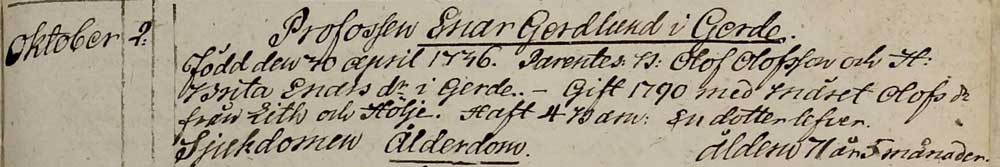 Oktober 2: Profossen Enar Gerdlund i Gerde.
Född den 30 april 1746. Parentes: B: Olof Olofsson och H:
Brita Enars dr i Gerde. – Gift 1790 med Märet Olofs dr
från Lith och Hölje. Haft 4 Barn: En dotter lefver.
Sjukdomen Ålderdom. Åldern 71 år 5 månader.